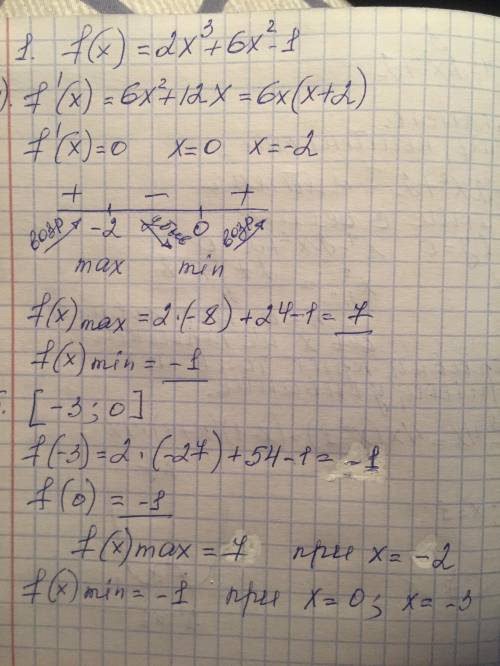 1. f(x) = 2x³+6x²-1
). f'(x) = 6x²+12x = 6x(x+2)
f'(x)=0 x=0 x=-2
+ - +
возр -2 убыв 0 возр
max min
f(x)max = 2·(-8)+24-1 = 7
f(x)min = -1
[-3; 0]
f(-3) = 2·(-27)+54-1 = -1
f(0) = -1
f(x)max = 7 при x = -2
f(x)min = -1 при x = 0; x = -3